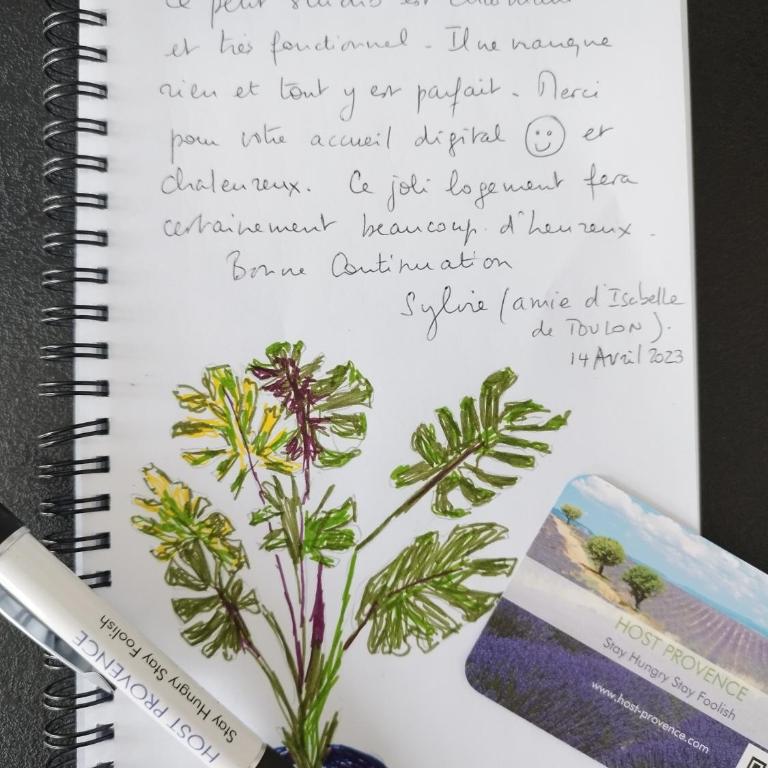 Ce petit studio est
et très fonctionnel. Il ne manque
rien et tout y est parfait. Merci
pour votre accueil digital et
chaleureux. Ce joli logement fera
certainement beaucoup d'heureux.
Bonne Continuation
Sylvie (amie d'Isabelle
de TOULON).
14 Avril 2023
HOST PROVENCE
Stay Hungry Stay Foolish
HOST PROVENCE
Stay Hungry Stay Foolish
www.host-provence.com